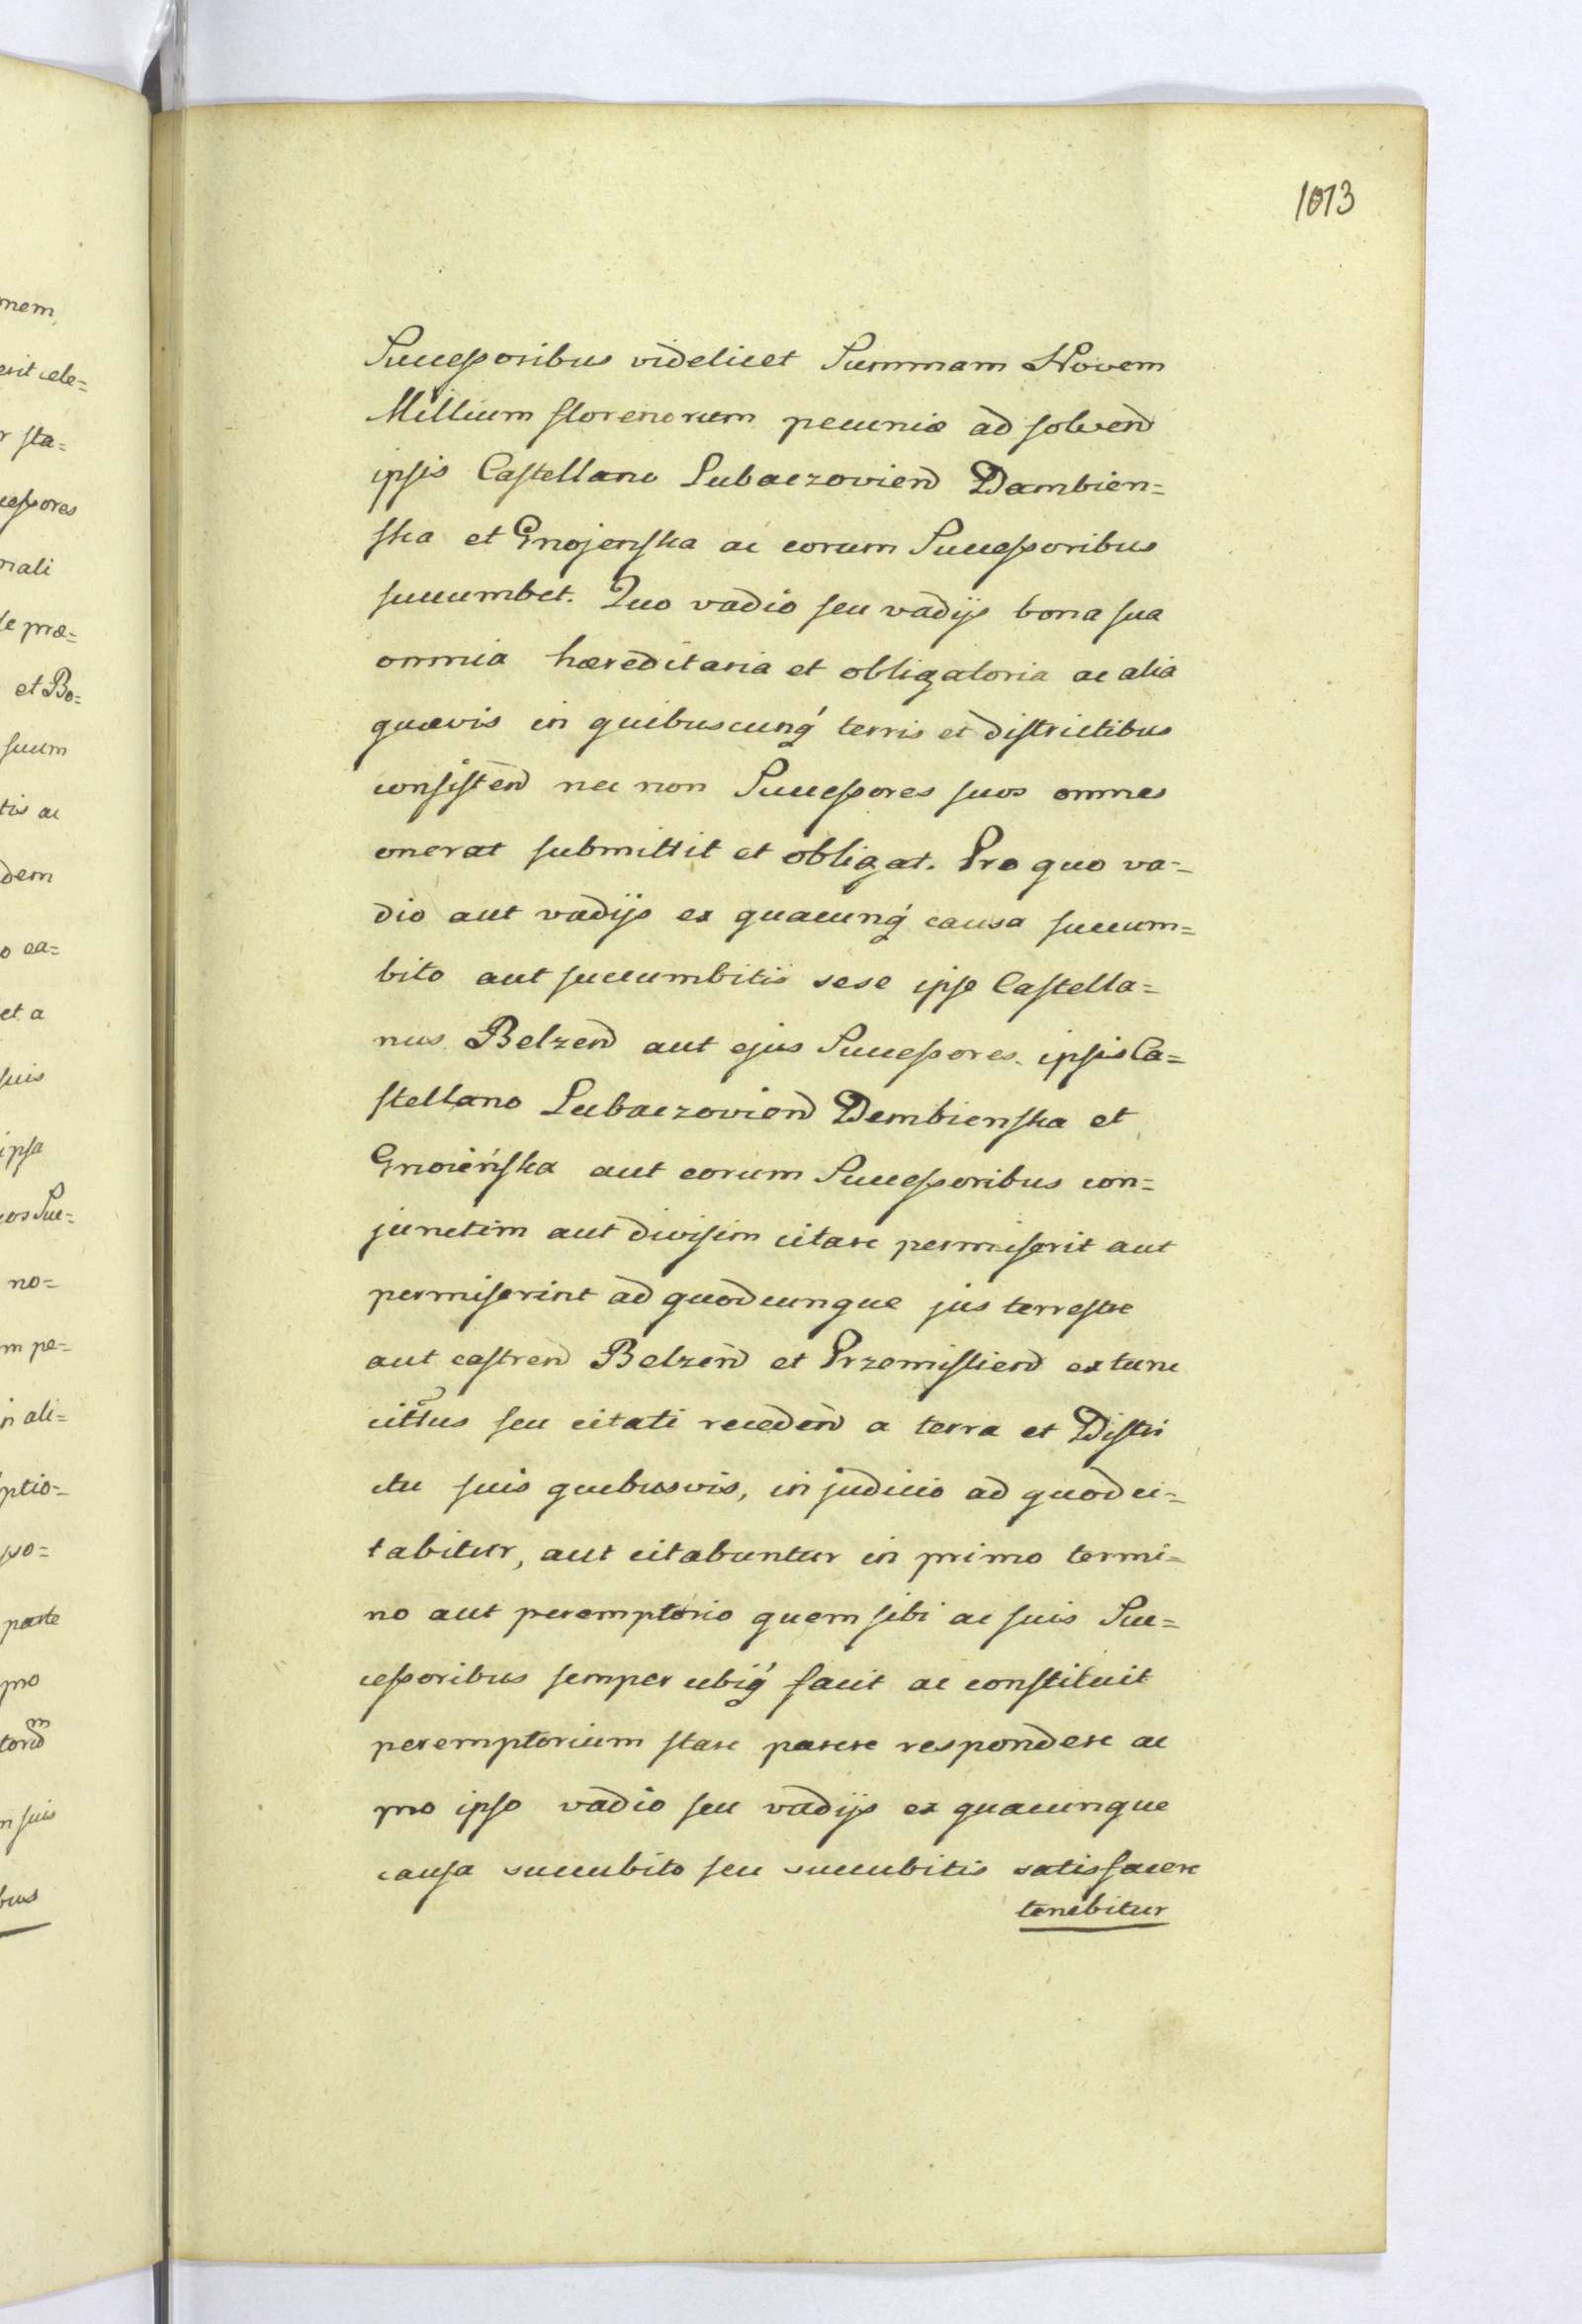 1013
Successoribus videlicet Summam Novem
Millium florenorum pecuniæ ad solvend
ipsis Castellano Lubaczoviend Dambien=
ska et Gnojenska ac eorum Successoribus
succumbet. Quo vadio seu vadijs bona sua
omnia hæreditaria et obligatoria ac alia
quævis in quibuscunq́ terris et districtibus
consistend nec non Successores suos omnes
onerat submittit et obligat. Pro quo va=
dio aut vadijs ex quacunq́ causa succum=
bito aut succumbitis sese ipse Castella=
nus Belzend aut ejus Successores ipsis Ca=
stellano Lubaczoviend Dembienska et
Gnoieńska aut eorum Successoribus con=
junctim aut divisim citare permiserit aut
permiserint ad quodcunque jus terrestre
aut castrend Belzend et Przemisliend extunc
cittus seu citati recedend a terra et Distri
ctu suis quibusvis, in judicio ad quod ci=
tabitur, aut citabuntur in primo termi=
no aut peremptorio quem sibi ac suis Suc=
cessoribus semper ubiq́ facit ac constituit
peremptorium stare parere respondere ac
pro ipso vadio seu vadijs ex quacunque
causa succubito seu succubitis satisfacere
tenebitur
mem,
erit cele=
r sta=
cessores
nali
se præ=
et Bo=
suum
tis ac
dem
o ca=
et a
suis
ipsa
os Suc=
no=
m pe=
n ali=
ptio=
parte
pro
n suis
bus